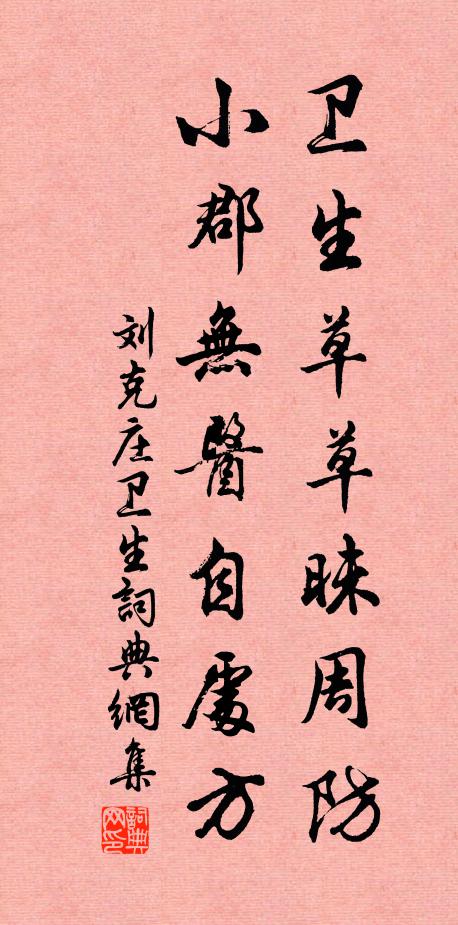 卫生草草昧周防
小郡無醫自處方
刘克庄卫生詞典網集
詞典网印